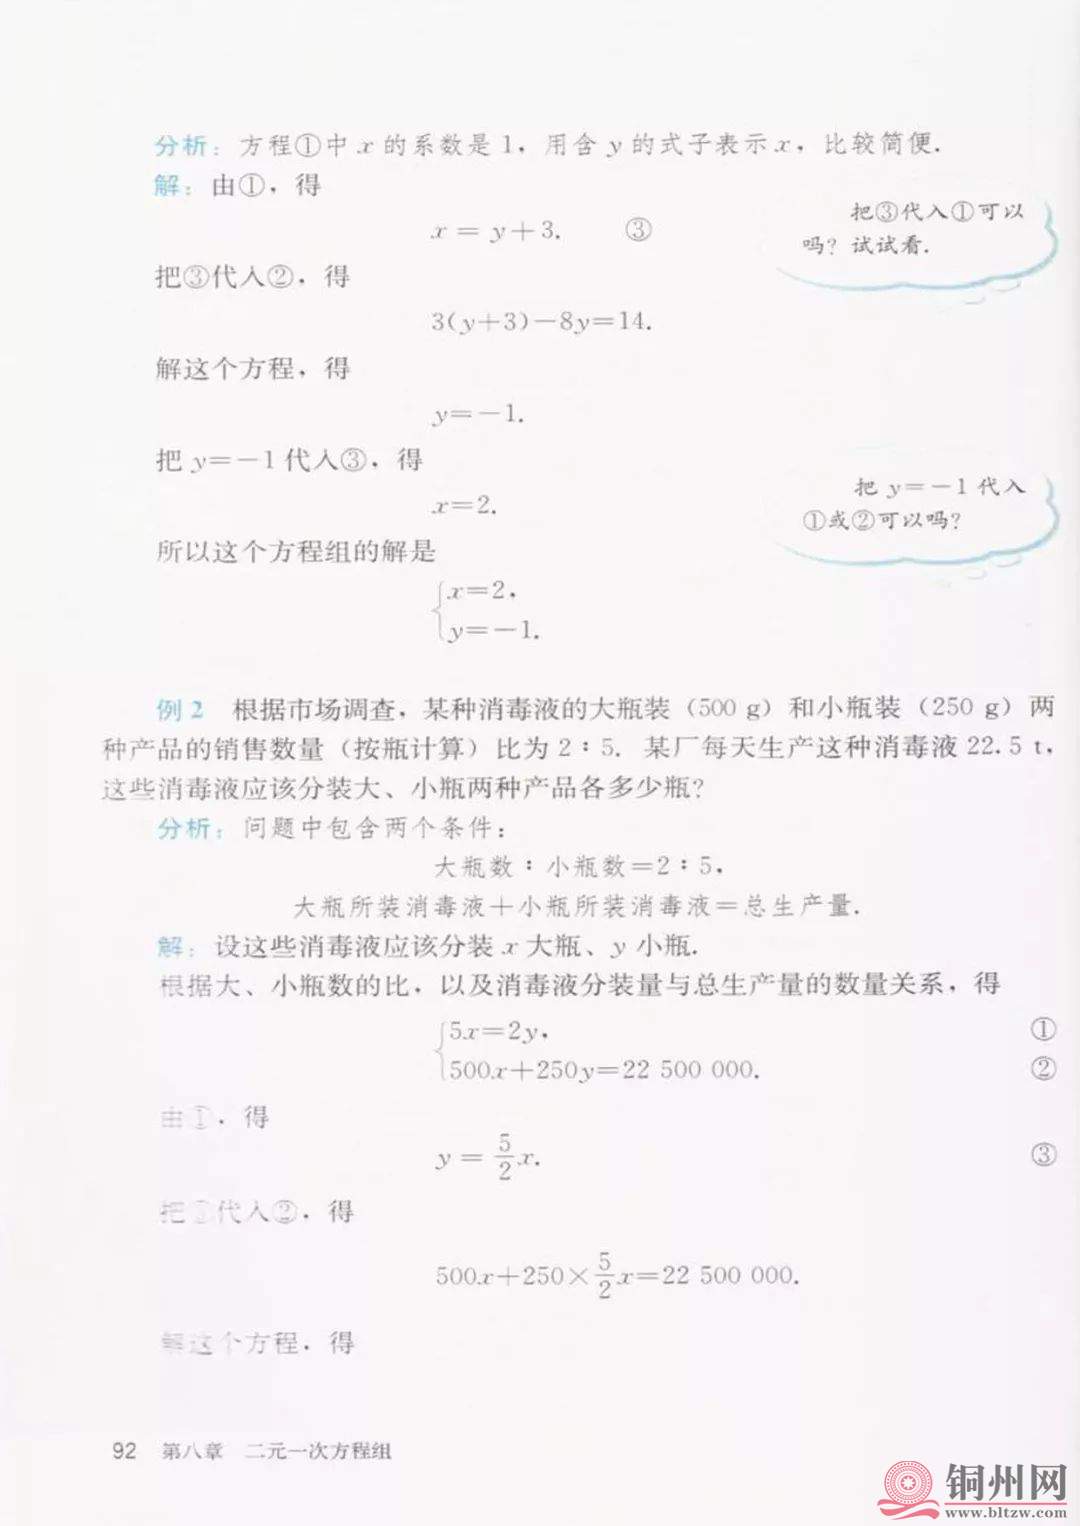 分析：方程①中 x 的系数是 1，用含 y 的式子表示 x，比较简便.
解：由①，得
x = y+3. ③
把③代入①可以
吗？试试看.
把③代入②，得
3(y+3)-8y=14.
解这个方程，得
y=-1.
把 y=-1 代入③，得
x=2.
把 y=-1 代入
①或②可以吗？
所以这个方程组的解是
x=2,
y=-1.
例2 根据市场调查，某种消毒液的大瓶装（500 g）和小瓶装（250 g）两
种产品的销售数量（按瓶计算）比为 2∶5. 某厂每天生产这种消毒液 22.5 t，
这些消毒液应该分装大、小瓶两种产品各多少瓶？
分析：问题中包含两个条件：
大瓶数∶小瓶数=2∶5，
大瓶所装消毒液+小瓶所装消毒液=总生产量.
解：设这些消毒液应该分装 x 大瓶、y 小瓶.
根据大、小瓶数的比，以及消毒液分装量与总生产量的数量关系，得
5x=2y, ①
500x+250y=22 500 000. ②
由①，得
y = 5/2 x. ③
把③代入②，得
500x+250×5/2 x=22 500 000.
解这个方程，得
92 第八章 二元一次方程组
铜州网
www.bltzw.com